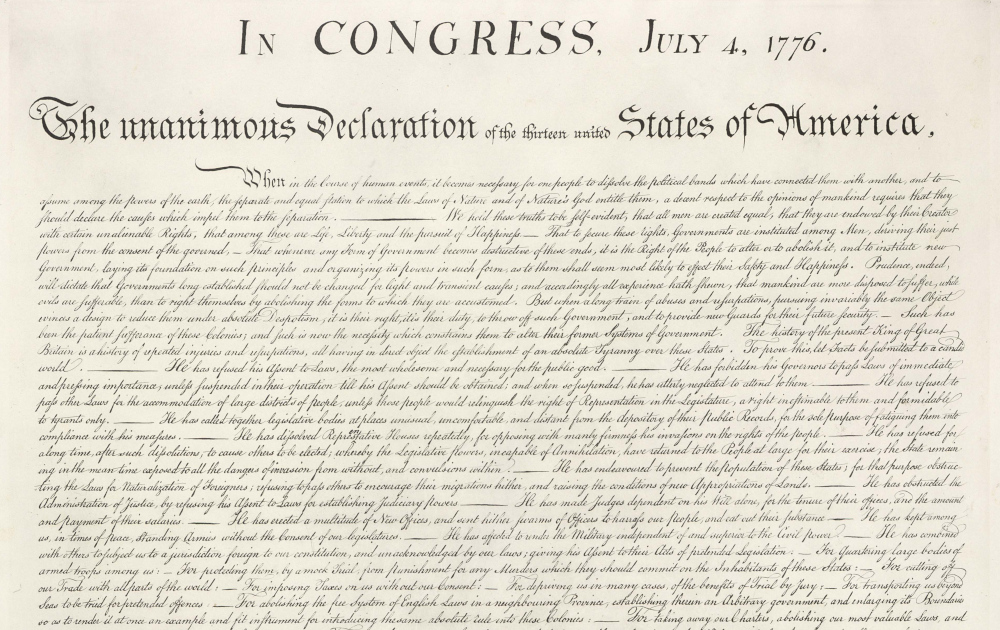 In CONGRESS, July 4, 1776.
The unanimous Declaration of the thirteen united States of America,
When in the Course of human events, it becomes necessary for one people to dissolve the political bands which have connected them with another, and to
assume among the powers of the earth, the separate and equal station to which the Laws of Nature and of Nature's God entitle them, a decent respect to the opinions of mankind requires that they
should declare the causes which impel them to the separation. ——— We hold these truths to be self-evident, that all men are created equal, that they are endowed by their Creator
with certain unalienable Rights, that among these are Life, Liberty and the pursuit of Happiness — That to secure these rights, Governments are instituted among Men, deriving their just
powers from the consent of the governed, — That whenever any Form of Government becomes destructive of these ends, it is the Right of the People to alter or to abolish it, and to institute new
Government, laying its foundation on such principles and organizing its powers in such form, as to them shall seem most likely to effect their Safety and Happiness. Prudence, indeed,
will dictate that Governments long established should not be changed for light and transient causes; and accordingly all experience hath shewn, that mankind are more disposed to suffer, while
evils are sufferable, than to right themselves by abolishing the forms to which they are accustomed. But when a long train of abuses and usurpations, pursuing invariably the same Object
evinces a design to reduce them under absolute Despotism, it is their right, it is their duty, to throw off such Government, and to provide new Guards for their future security. — Such has
been the patient sufferance of these Colonies; and such is now the necessity which constrains them to alter their former Systems of Government. The history of the present King of Great
Britain is a history of repeated injuries and usurpations, all having in direct object the establishment of an absolute Tyranny over these States. To prove this, let Facts be submitted to a candid
world. ——— He has refused his Assent to Laws, the most wholesome and necessary for the public good. ——— He has forbidden his Governors to pass Laws of immediate
and pressing importance, unless suspended in their operation till his Assent should be obtained; and when so suspended, he has utterly neglected to attend to them. ——— He has refused to
pass other Laws for the accommodation of large districts of people, unless those people would relinquish the right of Representation in the Legislature, a right inestimable to them and formidable
to tyrants only. ——— He has called together legislative bodies at places unusual, uncomfortable, and distant from the depository of their Public Records, for the sole purpose of fatiguing them into
compliance with his measures. ——— He has dissolved Representative Houses repeatedly, for opposing with manly firmness his invasions on the rights of the people. ——— He has refused for
a long time, after such dissolutions, to cause others to be elected; whereby the Legislative powers, incapable of Annihilation, have returned to the People at large for their exercise; the State remain
ing in the mean time exposed to all the dangers of invasion from without, and convulsions within. ——— He has endeavoured to prevent the population of these States; for that purpose obstruc
ting the Laws for Naturalization of Foreigners; refusing to pass others to encourage their migrations hither, and raising the conditions of new Appropriations of Lands. ——— He has obstructed the
Administration of Justice, by refusing his Assent to Laws for establishing Judiciary powers. ——— He has made Judges dependent on his Will alone, for the tenure of their offices, and the amount
and payment of their salaries. ——— He has erected a multitude of New Offices, and sent hither swarms of Officers to harrass our people, and eat out their substance. ——— He has kept among
us, in times of peace, Standing Armies without the Consent of our legislatures. ——— He has affected to render the Military independent of and superior to the Civil power. ——— He has combined
with others to subject us to a jurisdiction foreign to our constitution, and unacknowledged by our laws; giving his Assent to their Acts of pretended Legislation: — For Quartering large bodies of
armed troops among us: — For protecting them, by a mock Trial, from punishment for any Murders which they should commit on the Inhabitants of these States: — For cutting off
our Trade with all parts of the world: — For imposing Taxes on us without our Consent: — For depriving us in many cases, of the benefits of Trial by Jury: — For transporting us beyond
Seas to be tried for pretended offences — For abolishing the free System of English Laws in a neighbouring Province, establishing therein an Arbitrary government, and enlarging its Boundaries
so as to render it at once an example and fit instrument for introducing the same absolute rule into these Colonies: — For taking away our Charters, abolishing our most valuable Laws, and